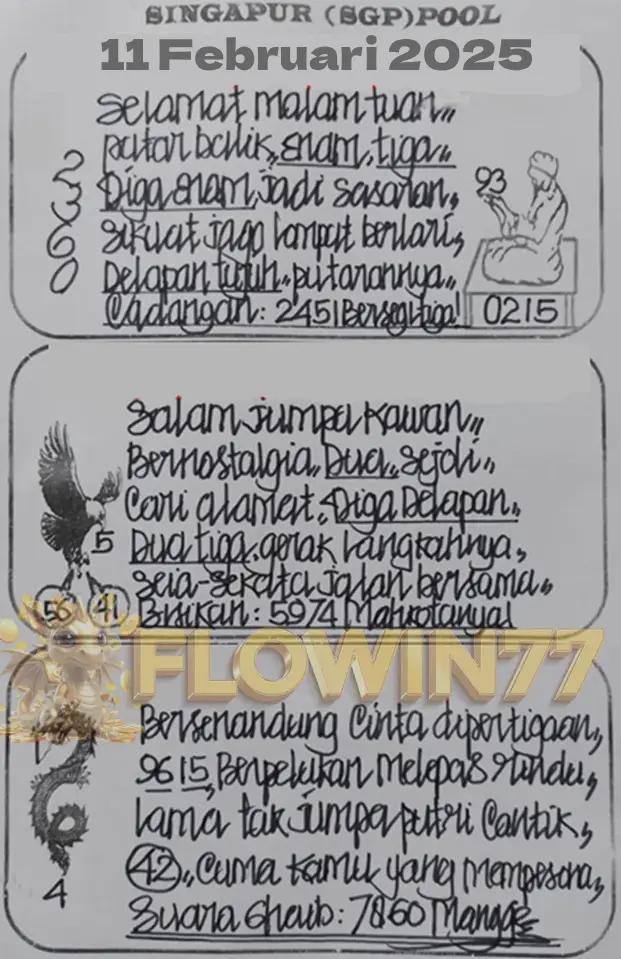 SINGAPUR (SGP) POOL
11 Februari 2025
Selamat malam tuan,,
putar balik, enam, tiga,,
2360
Diga enam, jadi sasaran,
93
Sikuat jago lompat berlari,
Delapan tujuh,, putarannya,,
Cadangan : 2451 Bersegi tiga!
0215
Salam jumpa kawan,,
Bernostalgia,, Dua,, Sejoli,,
Cari alamat, Diga Delapan,,
5
Dua tiga, gerak langkahnya,
Seia-Sekata jalan bersama,,
56 41
Bisikan : 5974 Mahkotanya!
FLOWIN77
Bersenandung Cinta dipertigaan,
9615, Berpelukan Melepas Rindu,
lama tak jumpa putri Cantik,
42,, Cuma kamu yang mempesona,
4
Suara Ghaib : 7860 Mangge